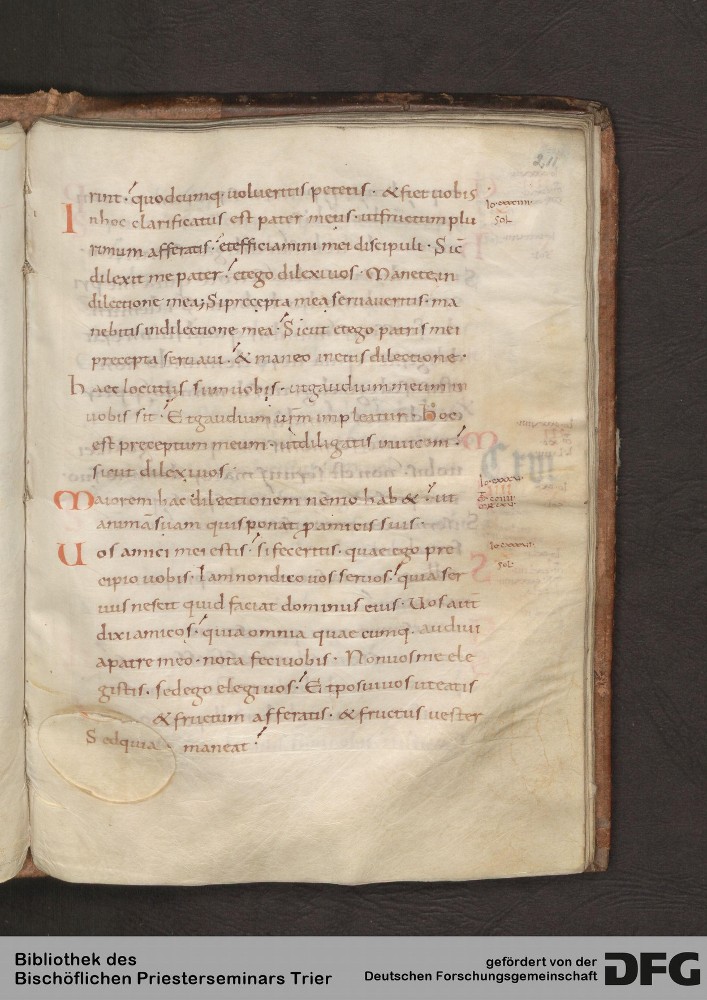 211
rint · quodcumq; uolueritis petetis · & fiet uobis
In hoc clarificatus est pater meus · ut fructum plu
rimum afferatis · et efficiamini mei discipuli · Sic̄
dilexit me pater · et ego dilexi uos · Manete in
dilectione mea; Si precepta mea seruaueritis · ma
nebitis in dilectione mea · Sicut et ego patris mei
precepta seruaui · & maneo in eius dilectione ·
haec locutus sum uobis · ut gaudium meum in
uobis sit · Et gaudium ur̄m impleatur · Hoc
est preceptum meum · ut diligatis inuicem ·
sicut dilexi uos ·
Maiorem hac dilectionem nemo hab& · ut
animā suam quis ponat p amicis suis ·
Uos amici mei estis · si feceritis · quae ego pre
cipio uobis · Iam non dico uos seruos · quia ser
uus nescit quid faciat dominus eius · Uos aut̄
dixi amicos · quia omnia quae cumq; audiui
a patre meo · nota feci uobis · Non uos me ele
gistis · sed ego elegi uos · Et posui uos ut eatis
& fructum afferatis · & fructus uester
maneat ·
Sed quia
sol·
sol·
Bibliothek des
Bischöflichen Priesterseminars Trier
gefördert von der
Deutschen Forschungsgemeinschaft
DFG